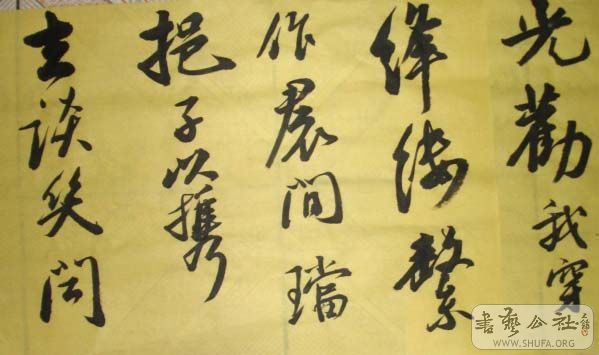 光勸我穿
絳縷繫
作裠間璫
挹子以攜
去談笑聞
書藝公社
WWW.SHUFA.ORG